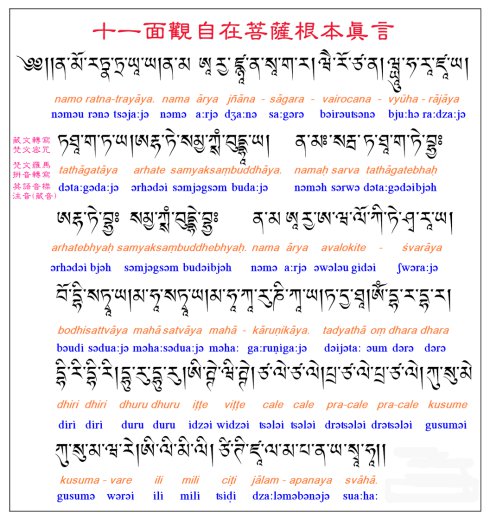 十一面觀自在菩薩根本眞言
༄༅།།ན་མོ་རཏྣ་ཏྲ་ཡཱ་ཡ།ན་མ ཨཱརྱ་ཛྙཱ་ན་སཱ་ག་ར། བཻ་རོ་ཙ་ན། བྱཱུ་ཧ་རཱ་ཛཱ་ཡ།
namo ratna-trayāya. nama ārya jñāna - sāgara - vairocana - vyūha - rājāya
nəməu rənə tsəja:jə nəmə a:rjə dʒa:nə sa:gərə bəirəutsənə bju:hə ra:dza:jə
藏文轉寫
梵文羅馬
拼音轉寫
英語音標
注音(藏音)
ཏ་ཐཱ་ག་ཏཱ་ཡ།ཨརྷ་ཏེ་སམྱཀྶཾ་བུདྡྷཱ་ཡ། ན་མཿ་སརྦ་ཏ་ཐཱ་ག་ཏེ་བྷྱཿ
tathāgatāya arhate samyaksaṃbuddhāya. namaḥ sarva tathagatebhaḥ
dəta:gəda:jə ərhədəi səmjəgsəm buda:jə nəməh sərwə dətə:gədəibjəh
ཨརྷ་ཏེ་བྷྱཿ སམྱཀྶཾ་བུདྡྷེ་བྷྱཿ ན་མ ཨཱརྱ་ཨ་ཝ་ལོ་ཀི་ཏེ་ཤྭ་རཱ་ཡ།
arhatebhyaḥ samyaksaṃbuddhebhyaḥ. nama ārya avalokite - śvarāya
ərhədəi bjəh səmjəgsəm budəibjəh nəmə a:rjə əwələu gidəi ʃwəra:jə
བོ་དྷི་སཏྭཱ་ཡ།མ་ཧཱ་སཏྭཱ་ཡ།མ་ཧཱ་ཀཱ་རུ་ཎི་ཀཱ་ཡ།ཏདྱ་ཐཱ།ཨོཾ་དྷ་ར་དྷ་ར།
bodhisattvāya mahā satvāya mahā - kāruṇikāya. tadyathā oṃ dhara dhara
bəudi sədua:jə məha:sədua:jə məha: ga:ruṇiga:jə dəijəta: əum dərə dərə
དྷི་རི་དྷི་རི།དྷུ་རུ་དྷུ་རུ།ཨི་ཊྚེ་ཝི་ཊྚེ།ཙ་ལེ་ཙ་ལེ།པྲ་ཙ་ལེ་པྲ་ཙ་ལེ།ཀུ་སུ་མེ
dhiri dhiri dhuru dhuru iṭṭe viṭṭe cale cale pra-cale pra-cale kusume
diri diri duru duru idzəi widzəi tsələi tsələi drətsələi drətsələi gusuməi
ཀུ་སུ་མ་ཝ་རེ།ཨི་ལི་མི་ལི། ཙི་ཊི་ཛཱ་ལ་མ་པ་ན་ཡ་སྭཱ་ཧཱ།།
kusuma - vare ili mili ciṭi jālam - apanaya svāhā.
gusumə wərəi ili mili tsiḍi dza:ləməbənəjə sua:ha: